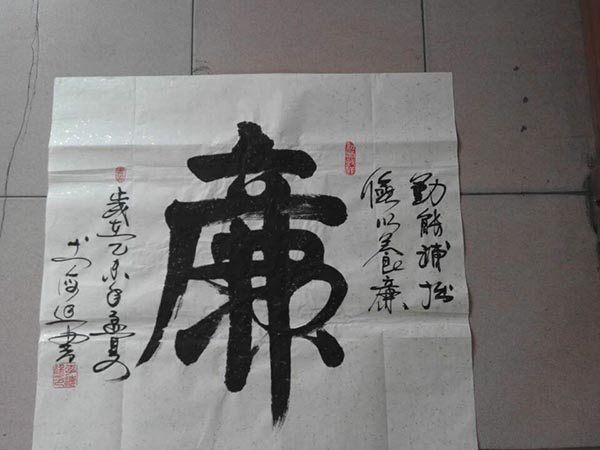 勤能補拙
儉以養廉
廉
歲在乙未年孟夏
書